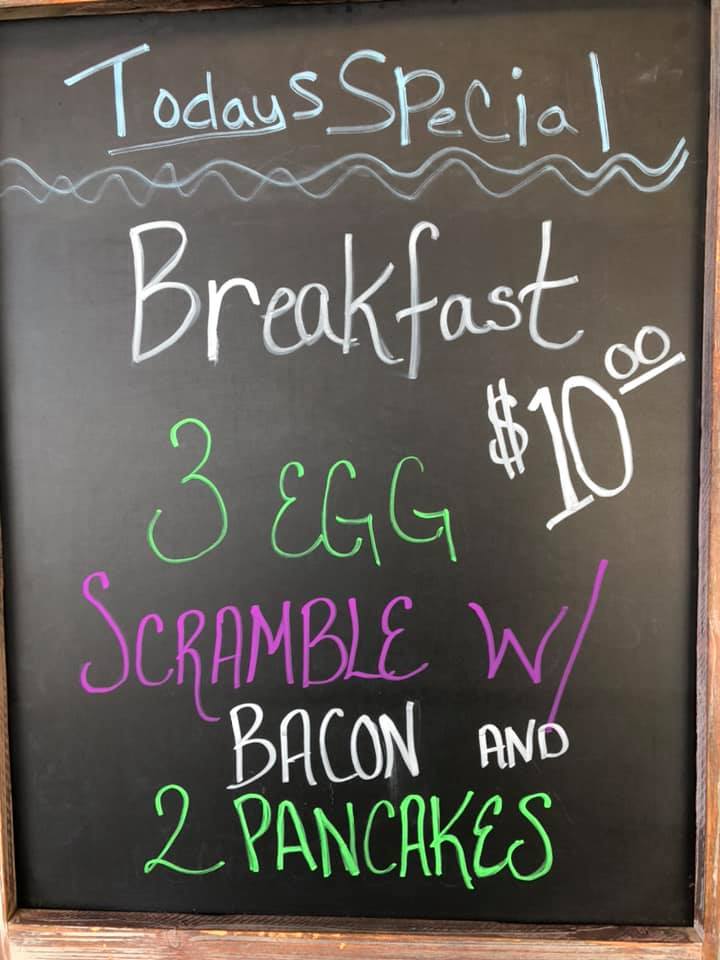 Todays Special
Breakfast
$10.00
3 EGG
SCRAMBLE W/
BACON AND
2 PANCAKES